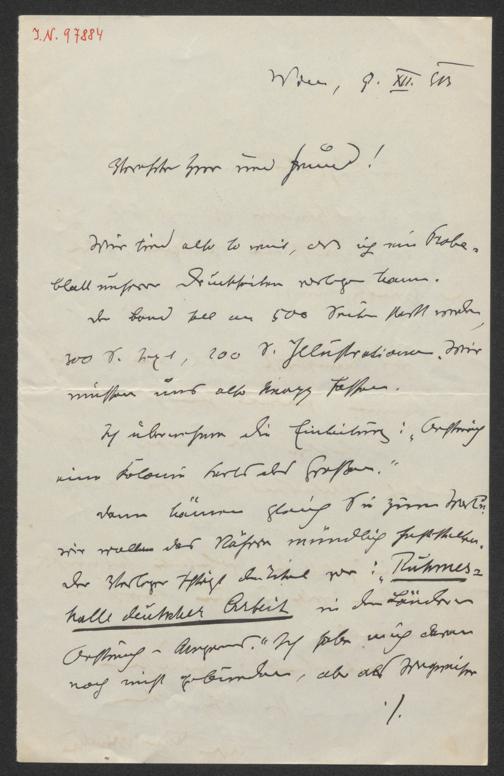 I.N. 97884
Wien, 9. XII. 913
Verehrter Herr und Freund!
Wir sind also so weit, daß ich ein Probe-
blatt unserer Druckseiten vorlegen kann.
Der Band soll an 500 Seiten stark werden,
300 S. Text, 200 S. Illustrationen. Wir
müssen uns also knapp fassen.
Ich übernehme die Einleitung: „Österreich
eine Kolonie Karls des Großen."
Dann kommen gleich Sie zum Wort
wir wollen das Nähere mündlich feststellen.
Der Verleger schlägt den Titel vor: „Ruhmes-
halle deutscher Arbeit in den Ländern
Österreich-Ungarns." Ich habe mich daran
noch nicht gebunden, aber als Wegweiser
./.